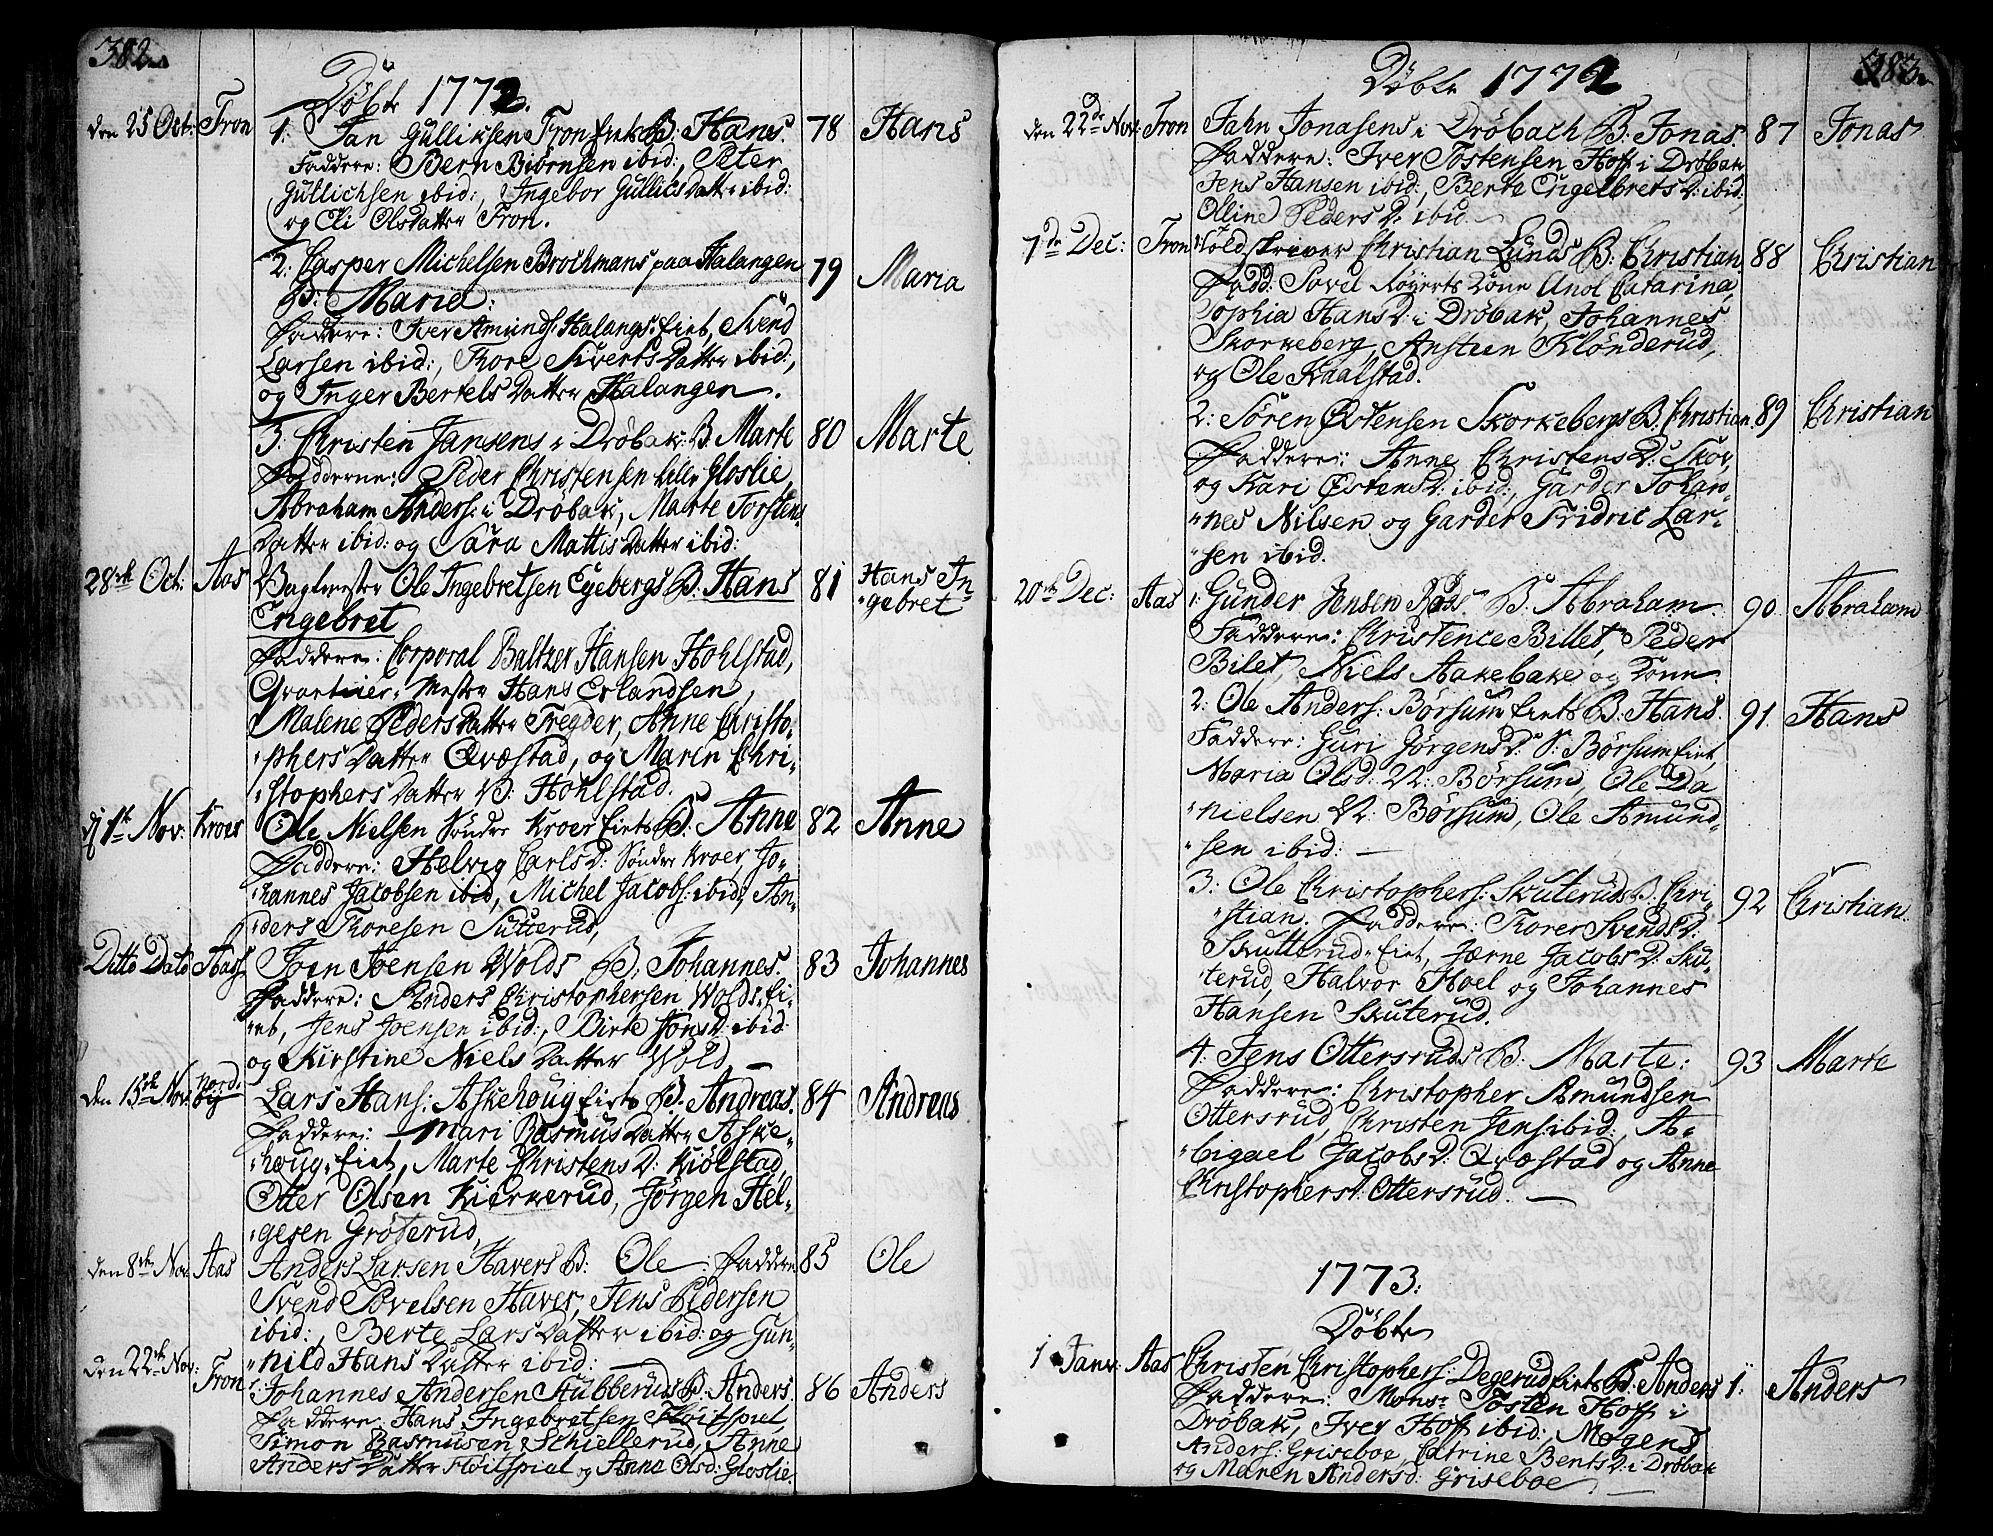 382.
Döbte 1772.
den 25 Oct: Fron 1. Jan Gulliksen Fron Eiets B: Hans. 78 Hans
Faddere: Bern Biörnsen ibid:, Peter
Gullichsen ibid:, Ingebor Gullics Datter ibid:
og Eli Olsdatter Fron.
2: Casper Michelsen Brochmans paa Halangen 79 Maria
B: Maria:
Faddere: Iver Amunds: Halangs: Eiet, Svend
Larsen ibid:, Thore Siverts Datter ibid:,
og Inger Bertels Datter Halangen.
3: Christen Jansens i Dröbak: B. Marte 80 Marte
Fadderne: Peder Christensen Lille Gloslie,
Abraham Anders: i Dröbak, Marte Torstens
Datter ibid: og Sara Mattis Datter ibid:
28de Oct: Aas Vagtmester Ole Ingebretsen Egebergs B: Hans 81 Hans In-
Engebret gebret
Faddere: Corporal Baltzer Hansen Hohlstad,
Qvarteer-Mester Hans Erlandsen,
Malene Peders Datter Fregder, Anne Christo-
phers Datter Qvæstad, og Maren Chri-
stophers Datter V: Hohlstad.
d 1te Nov: Kroer Ole Nielsen Söndre Kroer Eiets B: Anne 82 Anne
Faddere: Helvig Carls D: Söndre Kroer, Jo-
hannes Jacobsen ibid, Michel Jacobs: ibid:, An-
ders Thoresen Sutterud,
Ditto Dato Aas Joen Joensen Wolds B: Johannes. 83 Johannes
Faddere: Anders Christophersen Wolds Ei-
et, Jens Joensen ibid:, Birte Jons D: ibid:
og Kirstine Niels Datter Wold —
den 15de Nov: Nord-
by Lars Hans: Askehoug Eiets B. Andreas. 84 Andreas
Faddere: Mari Rasmus Datter Aske-
houg-Eiet, Marte Christens D: Kiölstad,
Otter Olsen Kierkerud, Jörgen Hel-
gesen Gröterud,
den 8de Nov: Aas Anders Larsen Havers B: Ole: Faddere 85 Ole
Svend Povelsen Haver, Jens Pedersen
ibid:, Berte Lars Datter ibid: og Gun-
nild Hans Datter ibid: —
den 22de Nov: Fron 1: Johannes Andersen Stubberuds B: Anders 86 Anders
Faddere: Hans Ingebretsen Flöitspiel,
Simon Rasmusen Schiellerud, Anne
Anders Datter Flöitspiel og Anne Olsd: Gloslie
383.
Döbte 1772
den 22de Nov: Fron Jahn Jonasens i Dröbach B: Jonas. 87 Jonas
Faddere: Iver Tostensen Hoff i Dröbak
Jens Hansen ibid:, Berte Engelbrets D: ibid:
Olline Peders D: ibid
7de Dec: Fron Told-skriver Christian Lunds B: Christian 88 Christian
Fadd: Povel Röyerts Kone Unol Catarina,
Sophia Hans D: i Dröbak, Johannes
Skorkeberg, Ansteen Klönderud,
og Ole Kaalstad.
2: Sören Östensen Skorkebergs B: Christian 89 Christian
Faddere: Anne Christens D: Skor,
og Kari Östens D: ibid:, Garder Johan-
nes Nilsen og Garder Fridric Lar-
sen ibid.
20de Dec: Aas 1: Gunder Jensen Raas B: Abraham 90. Abraham
Faddere: Christence Billet, Peder
Bilet, Niels Aakebake og Kone.
2: Ole Anders: Börsum Eiets B: Hans. 91. Hans
Faddere: Guri Jörgens D: S: Börsum Eiet,
Maria Olsd: V: Börsum, Ole Da
nielsen V: Börsum, Ole Amund-
sen ibid: —
3: Ole Christophers: Skuteruds B: Chri- 92 Christian.
stian. Faddere: Thorer Svends D:
Skutterud-Eiet, Jærne Jacobs D: Sku-
terud, Halvor Hoel og Johannes
Hansen Skuterud.
4. Jens Ottersruds B: Marte: 93 Marte
Faddere: Christopher Amundsen
Ottersrud, Christen Jens: ibid:, A-
bigael Jacobs D: Qvæstad og Anne
Christophers D: Ottersrud. —
1773:
Döbte
1 Janv: Aas Christen Christophers: Degerud Eiets B: Anders 1: Anders
Faddere: Mons: Tosten Hoff i
Dröbak, Iver Hoff ibid:, Mogens
Anders: Griseboe, Catrine Bents D: i Dröbak
og Maren Anders D: Griseboe. —